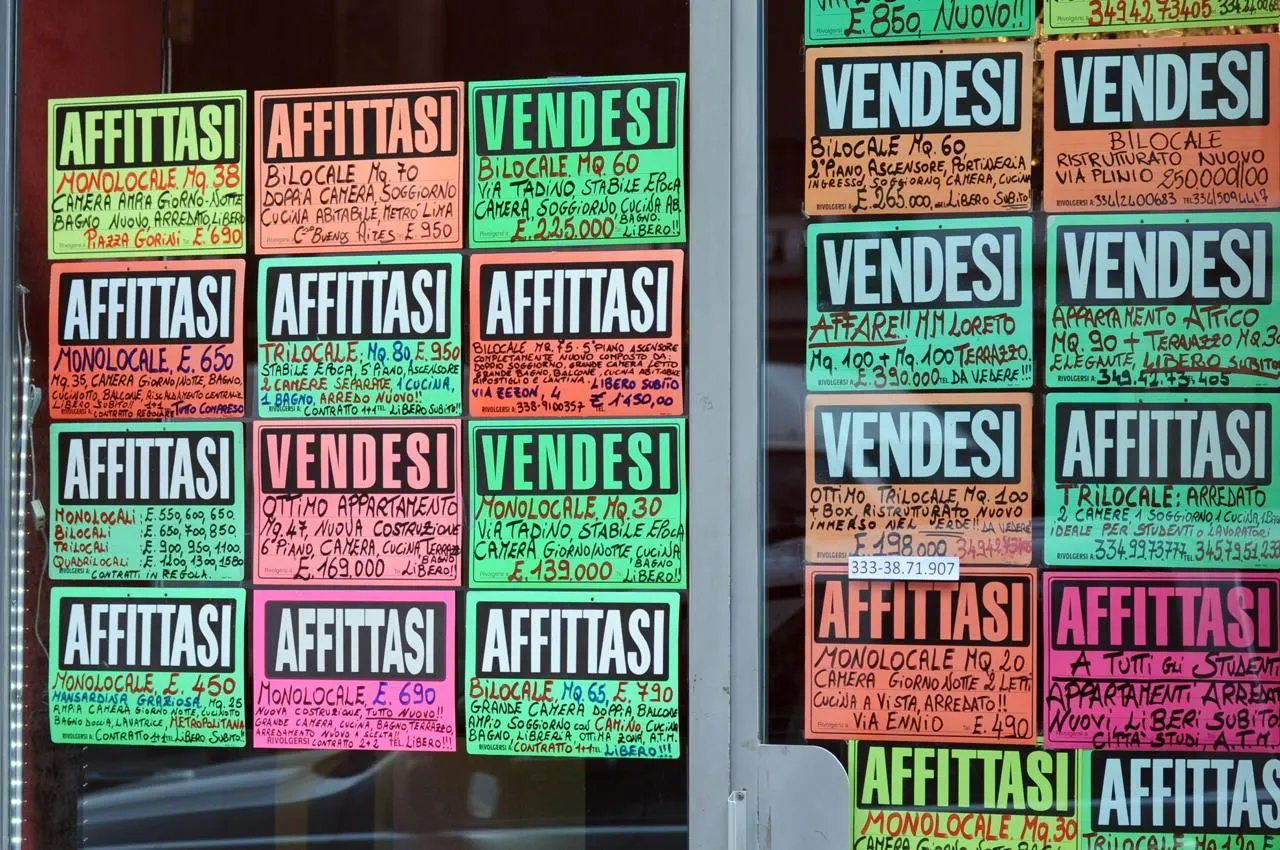 AFFITTASI
MONOLOCALE Mq. 38
CAMERA AMPIA GIORNO-NOTTE
BAGNO NUOVO, ARREDATO LIBERO
PIAZZA GORINI E. 690
AFFITTASI
BILOCALE Mq. 70
DOPPIA CAMERA, SOGGIORNO
CUCINA ABITABILE, METRO' LIMA
C.so BUENOS AIRES E 950
VENDESI
BILOCALE MQ. 60
VIA TADINO, STABILE EPOCA
CAMERA, SOGGIORNO CUCINA AB.
BAGNO.
E. 225.000 LIBERO!!
AFFITTASI
MONOLOCALE, E. 650
Mq. 35, CAMERA GIORNO/NOTTE, BAGNO,
CUCINOTTO, BALCONE, RISCALDAMENTO CENTRALE
LIBERO SUBITO!! 1+1
RIVOLGERSI A: CONTRATTO REGOLARE TUTTO COMPRESO
AFFITTASI
TRILOCALE; MQ. 80, E. 950
STABILE EPOCA, 5° PIANO, ASCENSORE
2 CAMERE SEPARATE, 1 CUCINA,
1 BAGNO, ARREDO NUOVO!!
RIVOLGERSI A: CONTRATTO 1+1 TEL. LIBERO SUBITO!!
AFFITTASI
BILOCALE MQ. 75 - 5° PIANO ASCENSORE
COMPLETAMENTE NUOVO COMPOSTO DA:
DOPPIO SOGGIORNO, GRANDE CAMERA LETTO
GRANDE BAGNO, BALCONE, CUCINA ABITABILE
RIPOSTIGLIO E CANTINA. LIBERO SUBITO
VIA ZERON, 4 E 1'150,00
RIVOLGERSI A: 338-9100357
AFFITTASI
MONOLOCALI: E. 550, 600, 650.
BILOCALI : E. 650, 700, 850.
TRILOCALI : E. 900, 950, 1100.
QUADRILOCALI : E. 1200, 1300, 1580
CONTRATTI IN REGOLA.
VENDESI
OTTIMO APPARTAMENTO
Mq. 47, NUOVA COSTRUZIONE
6° PIANO, CAMERA, CUCINA TERRAZZO
BAGNO
E. 169.000 LIBERO!!
VENDESI
MONOLOCALE MQ. 30
VIA TADINO, STABILE EPOCA
CAMERA GIORNO/NOTTE CUCINA
BAGNO
E. 139.000 LIBERO!!
AFFITTASI
MONOLOCALE E. 450
MANSARDINA GRAZIOSA, MQ. 25
AMPIA CAMERA GIORNO NOTTE, CUCINOTTO
BAGNO DOCCIA, LAVATRICE, METROPOLITANA
RIVOLGERSI A: CONTRATTO 1+1 TEL. LIBERO SUBITO!!
AFFITTASI
MONOLOCALE, E. 690
NUOVA COSTRUZIONE, TUTTO NUOVO!!
GRANDE CAMERA, CUCINA, BAGNO, TERRAZZO,
ARREDAMENTO NUOVO A SCELTA!!
RIVOLGERSI CONTRATTO 2+2 TEL. LIBERO!!!
AFFITTASI
BILOCALE, MQ 65, E. 790
GRANDE CAMERA DOPPIA, BALCONE
AMPIO SOGGIORNO CON CAMINO,
BAGNO, LIBRERIA OTTIMA ZONA, A.T.M.
RIVOLGERSI A: CONTRATTO 1+1 TEL. LIBERO!!!
E. 850, NUOVO!!
349 42.73405
VENDESI
BILOCALE MQ. 60
2° PIANO, ASCENSORE, PORTINERIA
INGRESSO, SOGGIORNO, CAMERA, CUCINA
RIVOLGERSI A: E. 265.000, TEL. LIBERO SUBITO!
VENDESI
BILOCALE
RISTRUTTURATO NUOVO
VIA PLINIO 250000,00
RIVOLGERSI A: 334/2400683 TEL. 331/5094417
VENDESI
AFFARE!! MM LORETO
Mq. 100 + MQ. 100 TERRAZZO.
RIVOLGERSI A: E. 390.000 TEL. DA VEDERE!!
VENDESI
APPARTAMENTO ATTICO
MQ. 90 + TERRAZZO MQ. 30
ELEGANTE, LIBERO SUBITO
RIVOLGERSI A: 349.42.73.405
VENDESI
OTTIMO TRILOCALE, MQ. 100
+ BOX, RISTRUTTURATO NUOVO
IMMERSO NEL VERDE!! DA VEDERE
E. 198.000
333-38.71.907
AFFITTASI
TRILOCALE: ARREDATO
2 CAMERE 1 SOGGIORNO, 1 CUCINA, 1 BAGNO
IDEALE PER STUDENTI o LAVORATORI
RIVOLGERSI A: 334.9973777 TEL. 34579.51.233
AFFITTASI
MONOLOCALE MQ. 20
CAMERA GIORNO NOTTE 2 LETTI
CUCINA A VISTA, ARREDATO!!
VIA ENNIO E. 490
AFFITTASI
A TUTTI GLI STUDENTI
APPARTAMENTI ARREDATI
NUOVI, LIBERI SUBITO
CITTA' STUDI A.T.M.
AFFITTASI
MONOLOCALE MQ. 30
CAMERA GIORNO NOTTE
AFFITTASI
TRILOCALE MQ 120 E